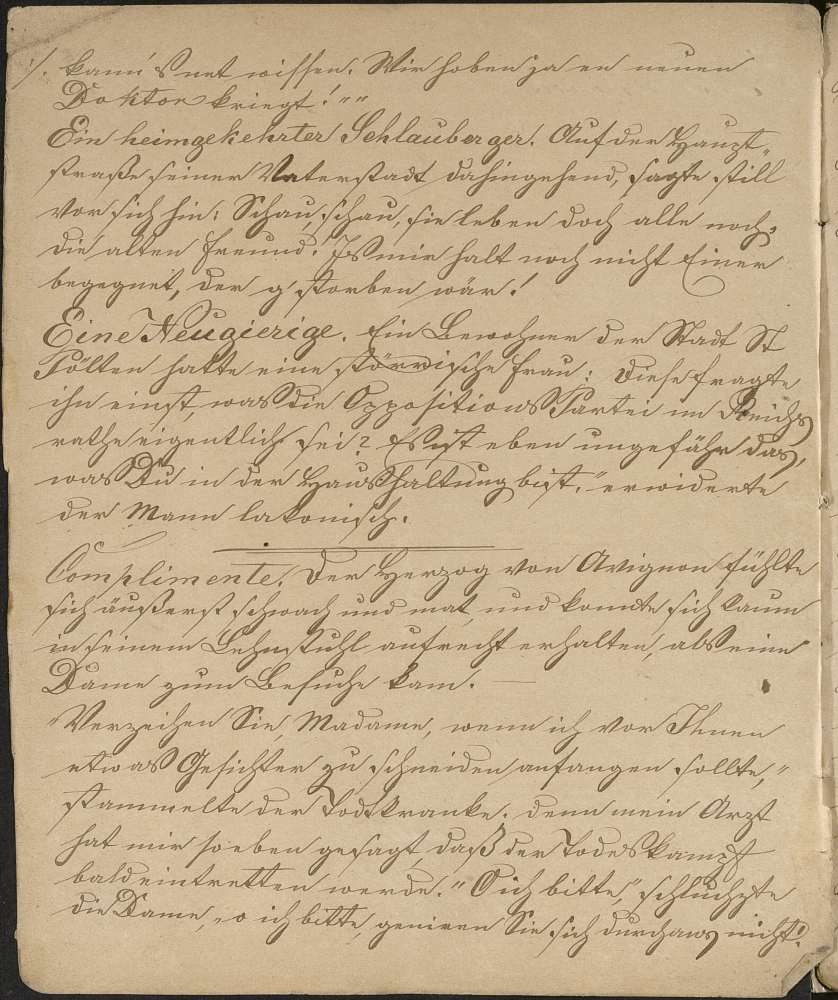 :/. kann's net wissen. Wir haben ja en neuen
Doktor kriegt!""
Ein heimgekehrter Schlauberger. Auf der Haupt„
straße seiner Vaterstadt dahingehend, sagte still
vor sich hin: Schau, schau, sie leben doch alle noch,
die alten Freund! Is mir halt noch nicht Einer
begegnet, der g'storben wär!
Eine Neugierige. Ein Bewohner der Stadt St
Pölten hatte eine störrische Frau; diese fragte
ihn einst, was die Oppositions Partei im Reichs
rathe eigentlich sei? Es ist eben ungefähr das,
was Du in der Haushaltung bist," erwiderte
der Mann lakonisch.
Complimente. Der Herzog von Avignon fühlte
sich äußerst schwach und mat, und konnte sich kaum
in seinem Lehnstuhl aufrecht erhalten, als eine
Dame zum Besuche kam. —
"Verzeihen Sie, Madame, wenn ich vor Ihnen
etwas Gesichter zu schneiden anfangen sollte,"
stammelte der Todtkranke. denn mein Arzt
hat mir soeben gesagt, daß der Todeskampf
bald eintretten werde." "O ich bitte," schluchzte
die Dame, "o ich bitte, geniren Sie sich durchaus nicht!